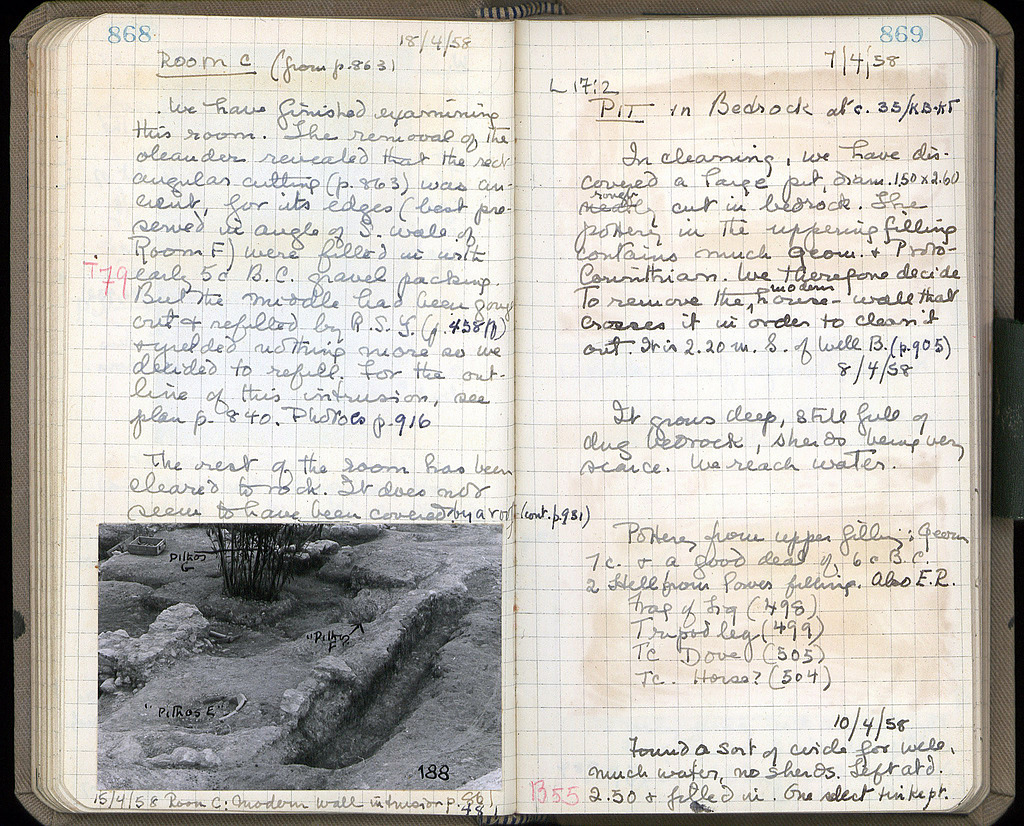 868
18/4/58
Room C (from p. 863)
We have finished examining
this room. The removal of the
oleander revealed that the rect
angular cutting (p. 863) was an-
cient, for its edges (best pre-
served in angle of S. wall of
Room F) were filled in with
T79 early 5c B.C. gravel packing.
But the middle had been gone
out & refilled by R.S.S. (p. 458 ff)
& yielded nothing more so we
decided to refill. For the out-
line of this intrusion, see
plan p. 840. Photos p. 916
The rest of the room has been
cleared to rock. It does not
seem to have been covered by a roof (cont. p. 931)
Pithos
G
"Pithos
F"
"Pithos E"
188
15/4/58 Room C: Modern wall intrusion p.
869
7/4/58
L 17:2
PIT in Bedrock at c. 35/KB-KΓ
In cleaning, we have dis-
covered a large pit, diam. 1.50 x 2.60
rough
neatly cut in bedrock. The
pottery in the uppering filling
contains much Geom. & Proto-
Corinthian. We therefore decide
modern
to remove the house-wall that
crosses it in order to clean it
out. It is 2.20 m. S. of Well B. (p. 905)
8/4/58
It grows deep, still full of
dug bedrock, sherds being very
scarce. We reach water.
Pottery from upper filling; Geom
7c. & a good deal of 6c B.C.
2 Hell from lower filling. Also E.R.
Frag of Fig (498)
Tripod leg (499)
Tc Dove (505)
Tc. Horse? (504)
10/4/58
Found a sort of circle for well,
much water, no sherds. Left at d.
B55 2.50 & filled in. One select tin kept.